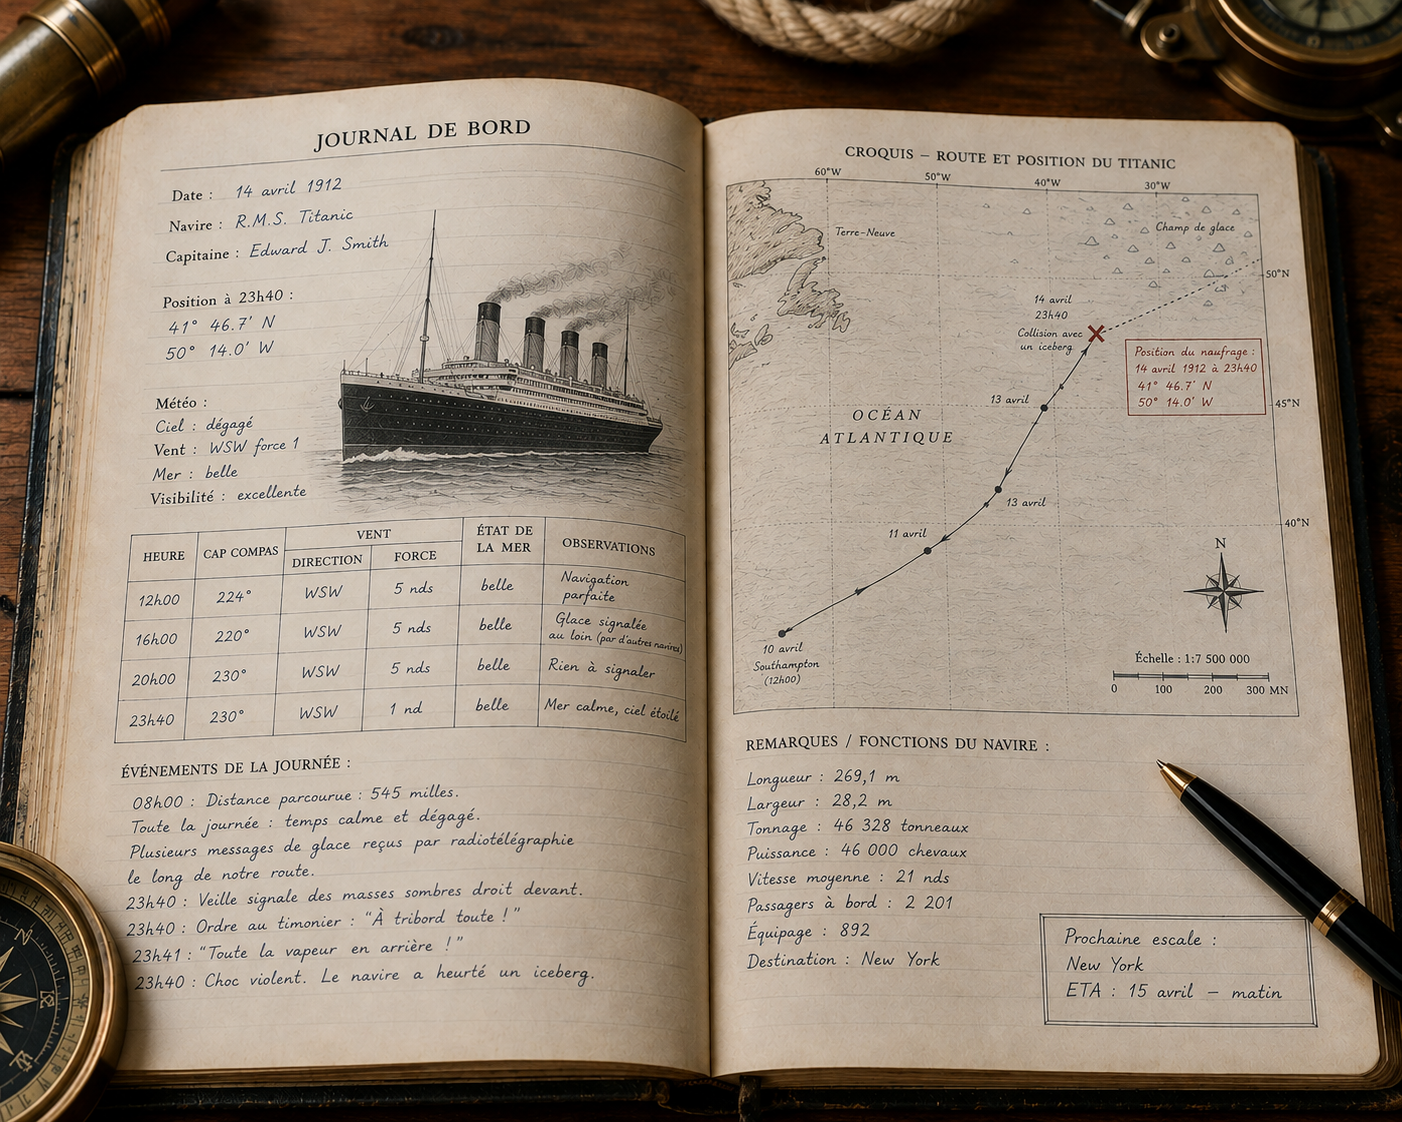 JOURNAL DE BORD
Date : 14 avril 1912
Navire : R.M.S. Titanic
Capitaine : Edward J. Smith
Position à 23h40 :
41° 46.7' N
50° 14.0' W
Météo :
Ciel : dégagé
Vent : WSW force 1
Mer : belle
Visibilité : excellente
HEURE CAP COMPAS VENT DIRECTION FORCE ÉTAT DE LA MER OBSERVATIONS
12h00 224° WSW 5 nds belle Navigation parfaite
16h00 220° WSW 5 nds belle Glace signalée au loin (par d'autres navires)
20h00 230° WSW 5 nds belle Rien à signaler
23h40 230° WSW 1 nd belle Mer calme, ciel étoilé
ÉVÉNEMENTS DE LA JOURNÉE :
08h00 : Distance parcourue : 545 milles.
Toute la journée : temps calme et dégagé.
Plusieurs messages de glace reçus par radiotélégraphie
le long de notre route.
23h40 : Veille signale des masses sombres droit devant.
23h40 : Ordre au timonier : "À tribord toute !"
23h41 : "Toute la vapeur en arrière !"
23h40 : Choc violent. Le navire a heurté un iceberg.
CROQUIS – ROUTE ET POSITION DU TITANIC
60°W 50°W 40°W 30°W
Terre-Neuve
Champ de glace
50°N
14 avril
23h40
Collision avec
un iceberg
Position du naufrage :
14 avril 1912 à 23h40
41° 46.7' N
50° 14.0' W
13 avril
45°N
OCÉAN
ATLANTIQUE
13 avril
11 avril
40°N
N
10 avril
Southampton
(12h00)
Échelle : 1:7 500 000
0 100 200 300 MN
REMARQUES / FONCTIONS DU NAVIRE :
Longueur : 269,1 m
Largeur : 28,2 m
Tonnage : 46 328 tonneaux
Puissance : 46 000 chevaux
Vitesse moyenne : 21 nds
Passagers à bord : 2 201
Équipage : 892
Destination : New York
Prochaine escale :
New York
ETA : 15 avril – matin